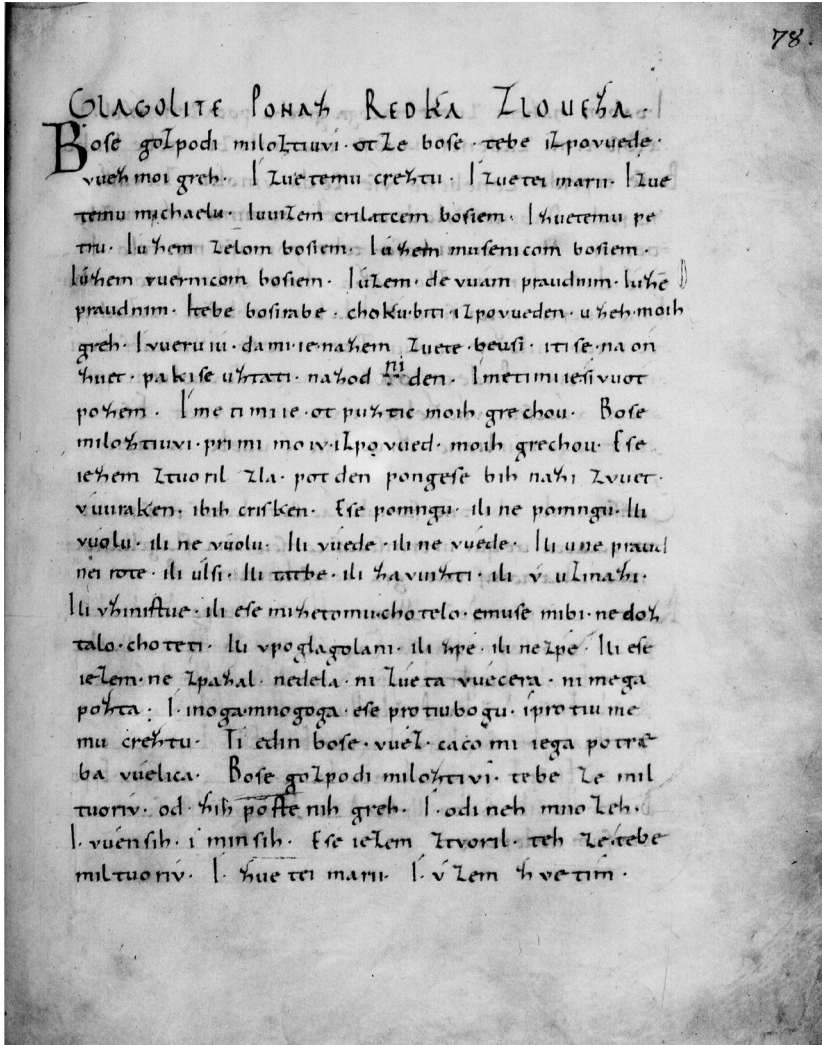 78.
GLAGOLITE PONAZ REDKA ZLOUEZA.
Bose gozpodi miloztiuvi. otze bose. tebe izpovuede.
vuez moi greh. I zuetemu creztu. I zuetei marii. I zue
temu michaelu. Iuuizem crilatcem bosiem. I zuetemu pe
tru. Iuzem zelom bosiem. Iuzem musenicom bosiem.
Iuzem vuernicom bosiem. Iuzem. devuam praudnim. Iuze
praudnim. Itebe bosirabe. choku.biti. izpovueden. uzeh. moih
greh. I vueruiu. dami.ie.nazem zuete. beusi. iti se. na on
zuet. pakise uztati. nazod ni den. Imetimi iesi vuot
pozem. Imetimi ie. ot puztic moih grechou. Bose
miloztiuvi. primi moiv. izpovued. moih grechou. Ese
iezem ztuoril zla. pot den pongese bih nazi zvuet.
vuuraken. ibih crisken. Ese pomngu. ili ne pomngu. Ili
vuolu. ili ne vuolu. Ili vuede. ili ne vuede. Ili u ne praud
nei rote. ili ulsi. Ili tatbe. ili zavuizti. ili v uzmazi.
Ili vzinistue. ili ese mizetomu.chotelo. emuse mibi. ne doz
talo. choteti. Ili vpoglagolani. ili zpe. ili nezpe. Ili ese
iezem. ne zpazal. nedela. ni zueta vuecera. ni mega
pozta. I. inoga.mnogoga. ese protiubogu. i protiu me
mu creztu. Ti edin bose. vuez. caco mi iega potre
ba vuelica. Bose gozpodi miloztivi. tebe ze mil
tuoriv. od zih postenih greh. I. odineh mnozeh.
I. vuensih. i minsih. Ese iezem ztvoril. teh ze.tebe
miltuoriv. I. zuetei marii. I. vzem zvetim.